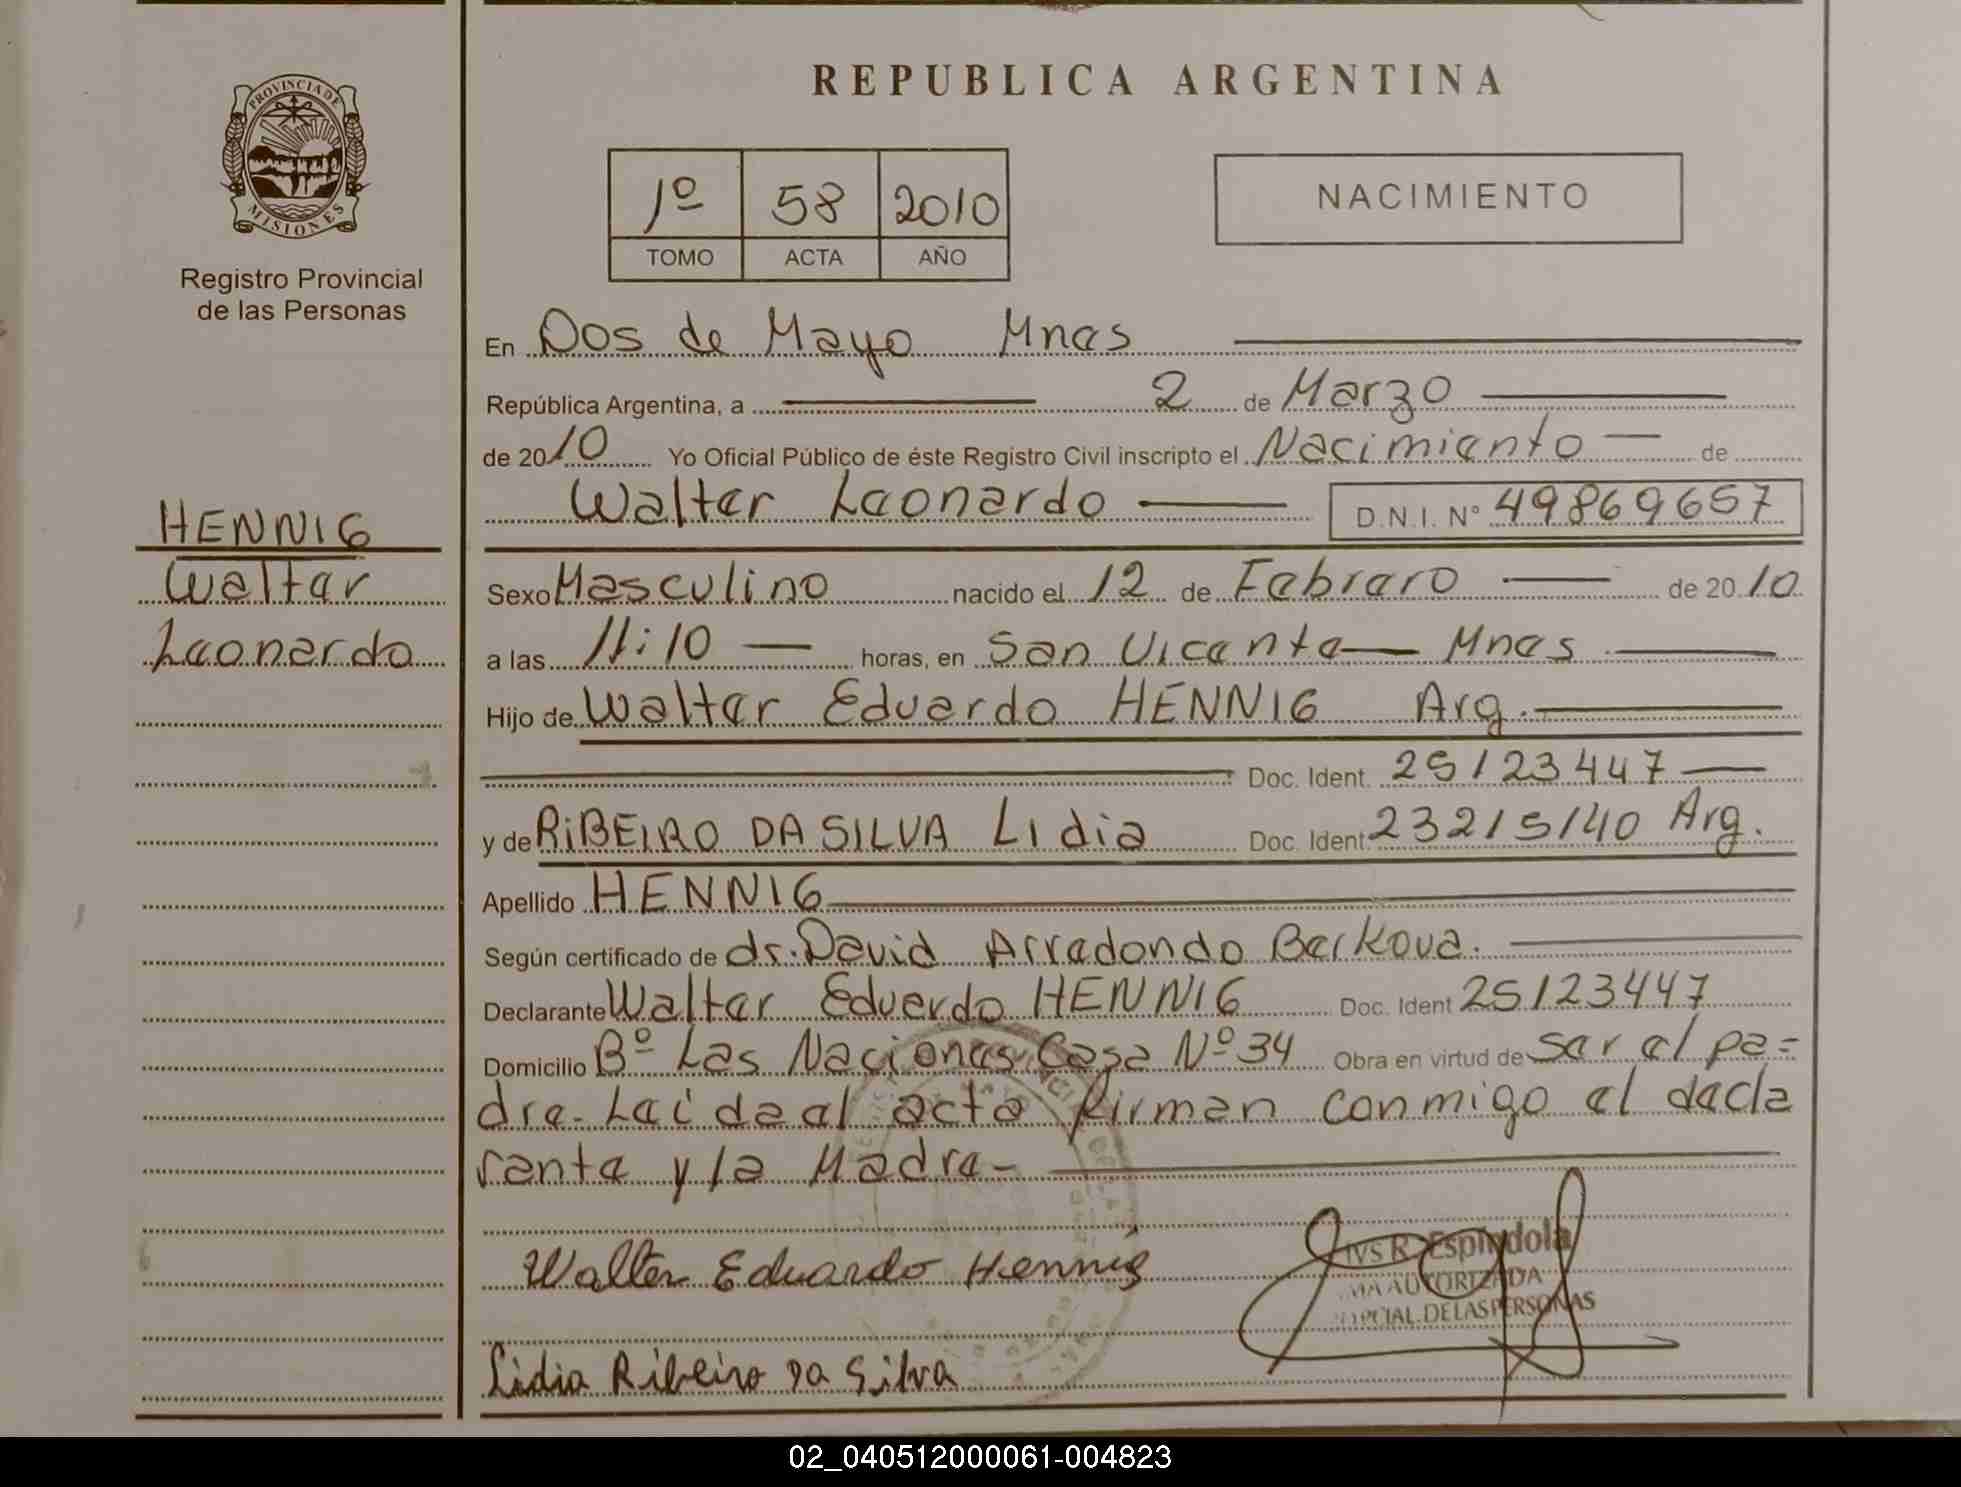 PROVINCIA DE
MISIONES
Registro Provincial
de las Personas
HENNIG
Walter
Leonardo
REPUBLICA ARGENTINA
1º 58 2010
TOMO ACTA AÑO
NACIMIENTO
En Dos de Mayo Mnes
República Argentina, a 2 de Marzo
de 2010 Yo Oficial Público de éste Registro Civil inscripto el Nacimiento de
Walter Leonardo D.N.I. Nº 49869657
Sexo Masculino nacido el 12 de Febrero de 2010
a las 11:10 horas, en San Vicente Mnes
Hijo de Walter Eduardo HENNIG Arg.
Doc. Ident. 25123447
y de RiBEIRO DA SILVA Lidia Doc. Ident. 23215140 Arg.
Apellido HENNIG
Según certificado de dr. David Arredondo Berkova.
Declarante Walter Eduardo HENNIG Doc. Ident 25123447
Domicilio Bº Las Naciones Casa Nº 34 Obra en virtud de ser el pa=
dre. Leida el acta firman conmigo el decla
rante y la Madre-
Walter Eduardo Hennig
R. Espindola
AUTORIZADA
DE LAS PERSONAS
Lidia Ribeiro Da Silva
02_040512000061-004823